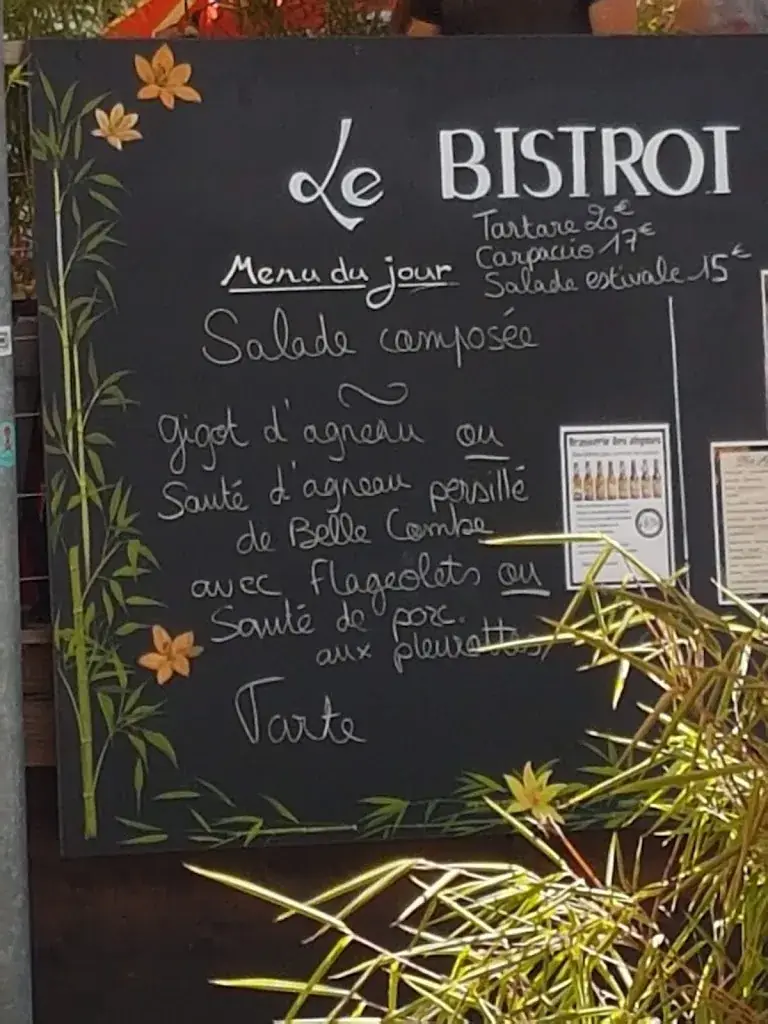 Le BISTROT
Tartare 20€
Carpaccio 17€
Salade estivale 15€
Menu du jour
Salade composée
~
Gigot d'agneau ou
Sauté d'agneau persillé
de Belle Combe
avec Flageolets ou
Sauté de porc.
aux pleurottes
Tarte
Brasserie des